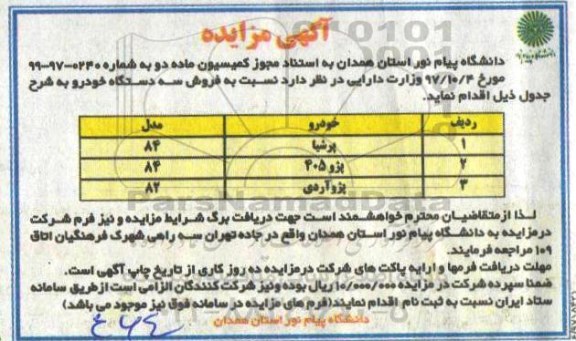 آگهی مزایده
دانشگاه پیام نور استان همدان به استناد مجوز کمیسیون ماده دو به شماره ۰۲۴۰-۹۷-۹۹
مورخ ۹۷/۱۰/۴ وزارت دارایی در نظر دارد نسبت به فروش سه دستگاه خودرو به شرح
جدول ذیل اقدام نماید.
ردیف خودرو مدل
۱ پرشیا ۸۴
۲ پژو ۴۰۵ ۸۴
۳ پژوآردی ۸۲
لذا ازمتقاضیان محترم خواهشمند است جهت دریافت برگ شرایط مزایده و نیز فرم شرکت
درمزایده به دانشگاه پیام نور استان همدان واقع در جاده تهران سه راهی شهرک فرهنگیان اتاق
۱۰۹ مراجعه فرمایند.
مهلت دریافت فرمها و ارایه پاکت های شرکت درمزایده ده روز کاری از تاریخ چاپ آگهی است.
ضمنا سپرده شرکت در مزایده ۱۰/۰۰۰/۰۰۰ ریال بوده ونیز شرکت کنندگان الزامی است ازطریق سامانه
ستاد ایران نسبت به ثبت نام اقدام نمایند(فرم های مزایده در سامانه فوق نیز موجود می باشد)
دانشگاه پیام نور استان همدان
ParsNamadData